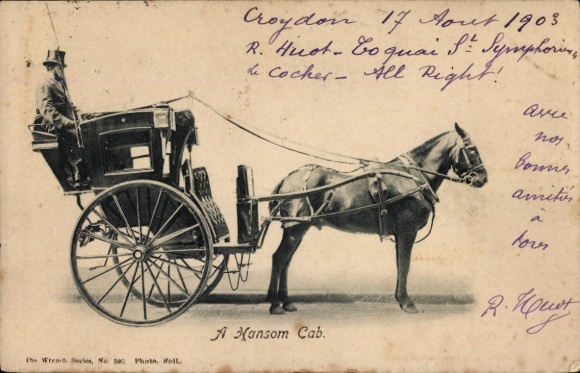 Croydon 17 Aout 1903
R. Huot - Toquai St. Symphorien
le Cocher - All Right!
avec
nos
bonnes
amitiés
à
tous
R. Huot
A Hansom Cab.
The Wrench Series, No. 380 Photo.